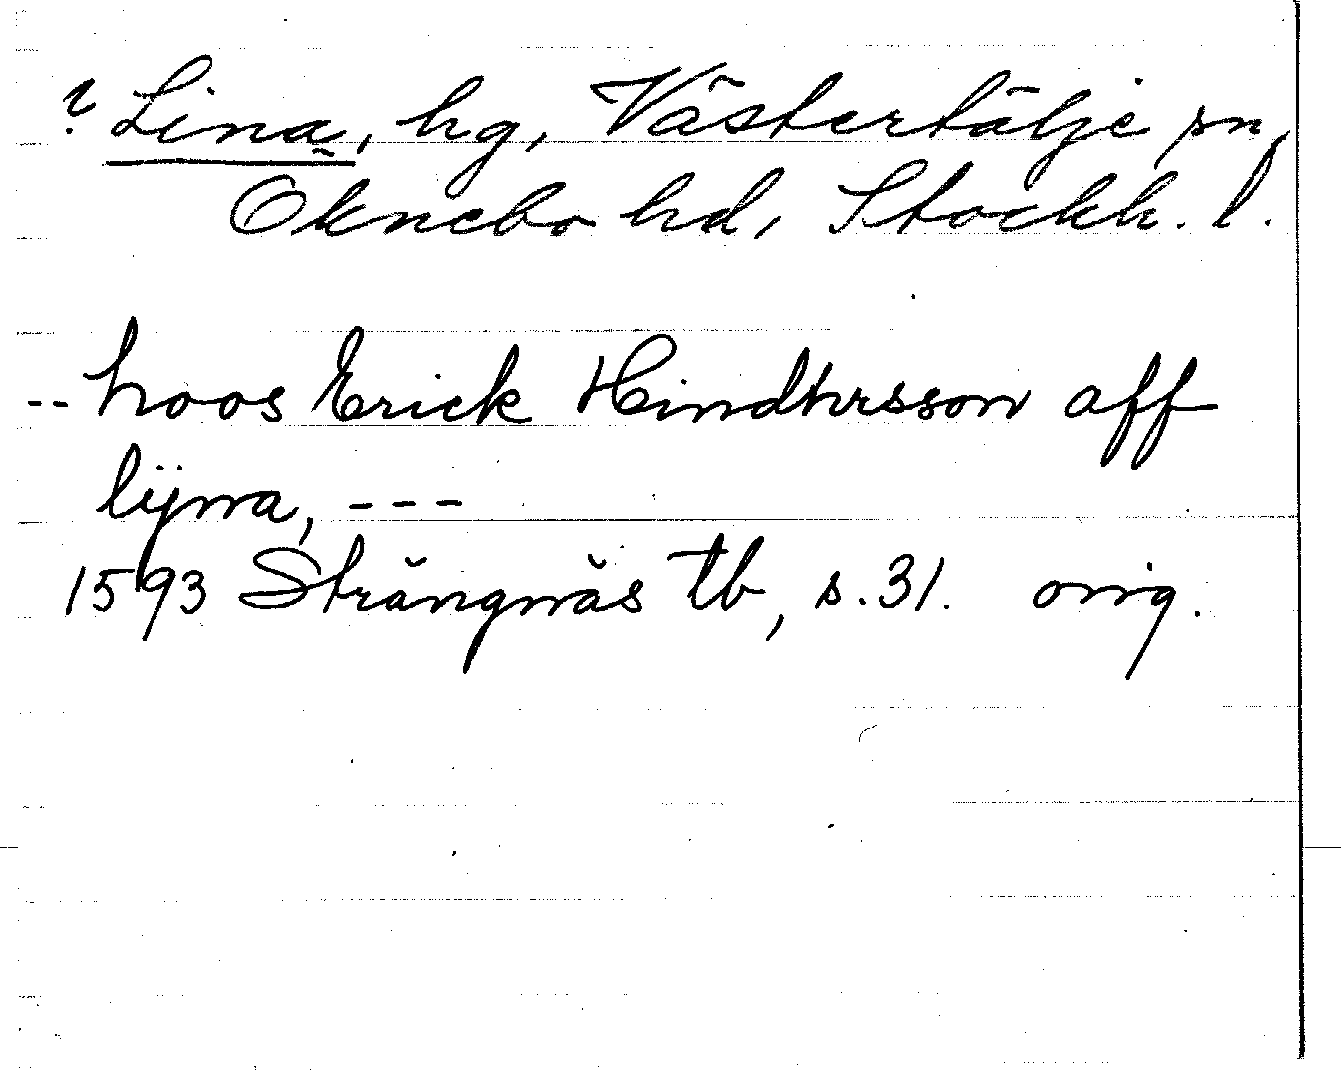 ? Lina, hg, Västertälje sn,
Öknebo hd, Stockh. l.
-- hoos Erick Hindhrsson aff
lÿna, ---
1593 Strängnäs tb, s. 31. orig.